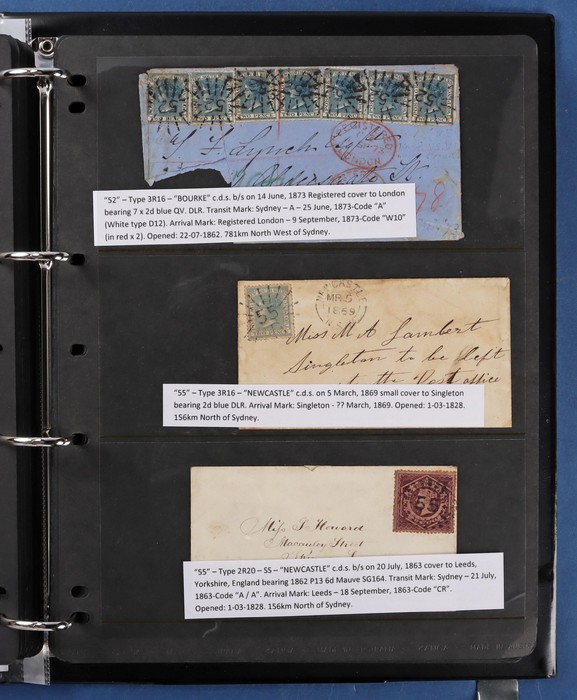 TWO PENCE TWO PENCE TWO PENCE TWO PENCE TWO PENCE TWO PENCE
REGISTERED
LONDON
78
"52" – Type 3R16 – "BOURKE" c.d.s. b/s on 14 June, 1873 Registered cover to London
bearing 7 x 2d blue QV. DLR. Transit Mark: Sydney – A – 25 June, 1873-Code "A"
(White type D12). Arrival Mark: Registered London – 9 September, 1873-Code "W10"
(in red x 2). Opened: 22-07-1862. 781km North West of Sydney.
55
NEWCASTLE
MR 5
1869
Miss M A Lambert
Singleton to be left
the Post office
"55" – Type 3R16 – "NEWCASTLE" c.d.s. on 5 March, 1869 small cover to Singleton
bearing 2d blue DLR. Arrival Mark: Singleton - ?? March, 1869. Opened: 1-03-1828.
156km North of Sydney.
55
Miss S. Howard
Macauley Street
"55" – Type 2R20 – SS – "NEWCASTLE" c.d.s. b/s on 20 July, 1863 cover to Leeds,
Yorkshire, England bearing 1862 P13 6d Mauve SG164. Transit Mark: Sydney – 21 July,
1863-Code "A / A". Arrival Mark: Leeds – 18 September, 1863-Code "CR".
Opened: 1-03-1828. 156km North of Sydney.